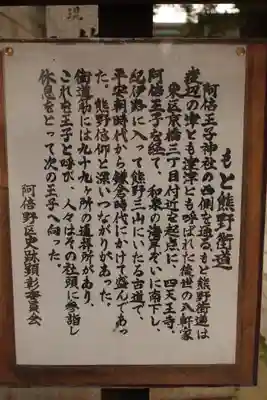 もと熊野街道
阿倍王子神社の西側を通るもと熊野街道は
渡辺の津とも窪津とも呼ばれた後世の八軒家
東区京橋三丁目付近を起点に四天王寺、
阿倍王子を経て、和泉の海岸ぞいに南下し、
紀伊路に入って熊野三山にいたる古道で、
平安朝時代から鎌倉時代にかけて盛んであっ
た。熊野信仰と深いつながりがあった。
街道筋には九十九ヶ所の遥拝所があり、
これを王子と呼び、人々はその社頭に参詣し
休息をとって次の王子へ向った。
阿倍野区史跡顕彰委員会